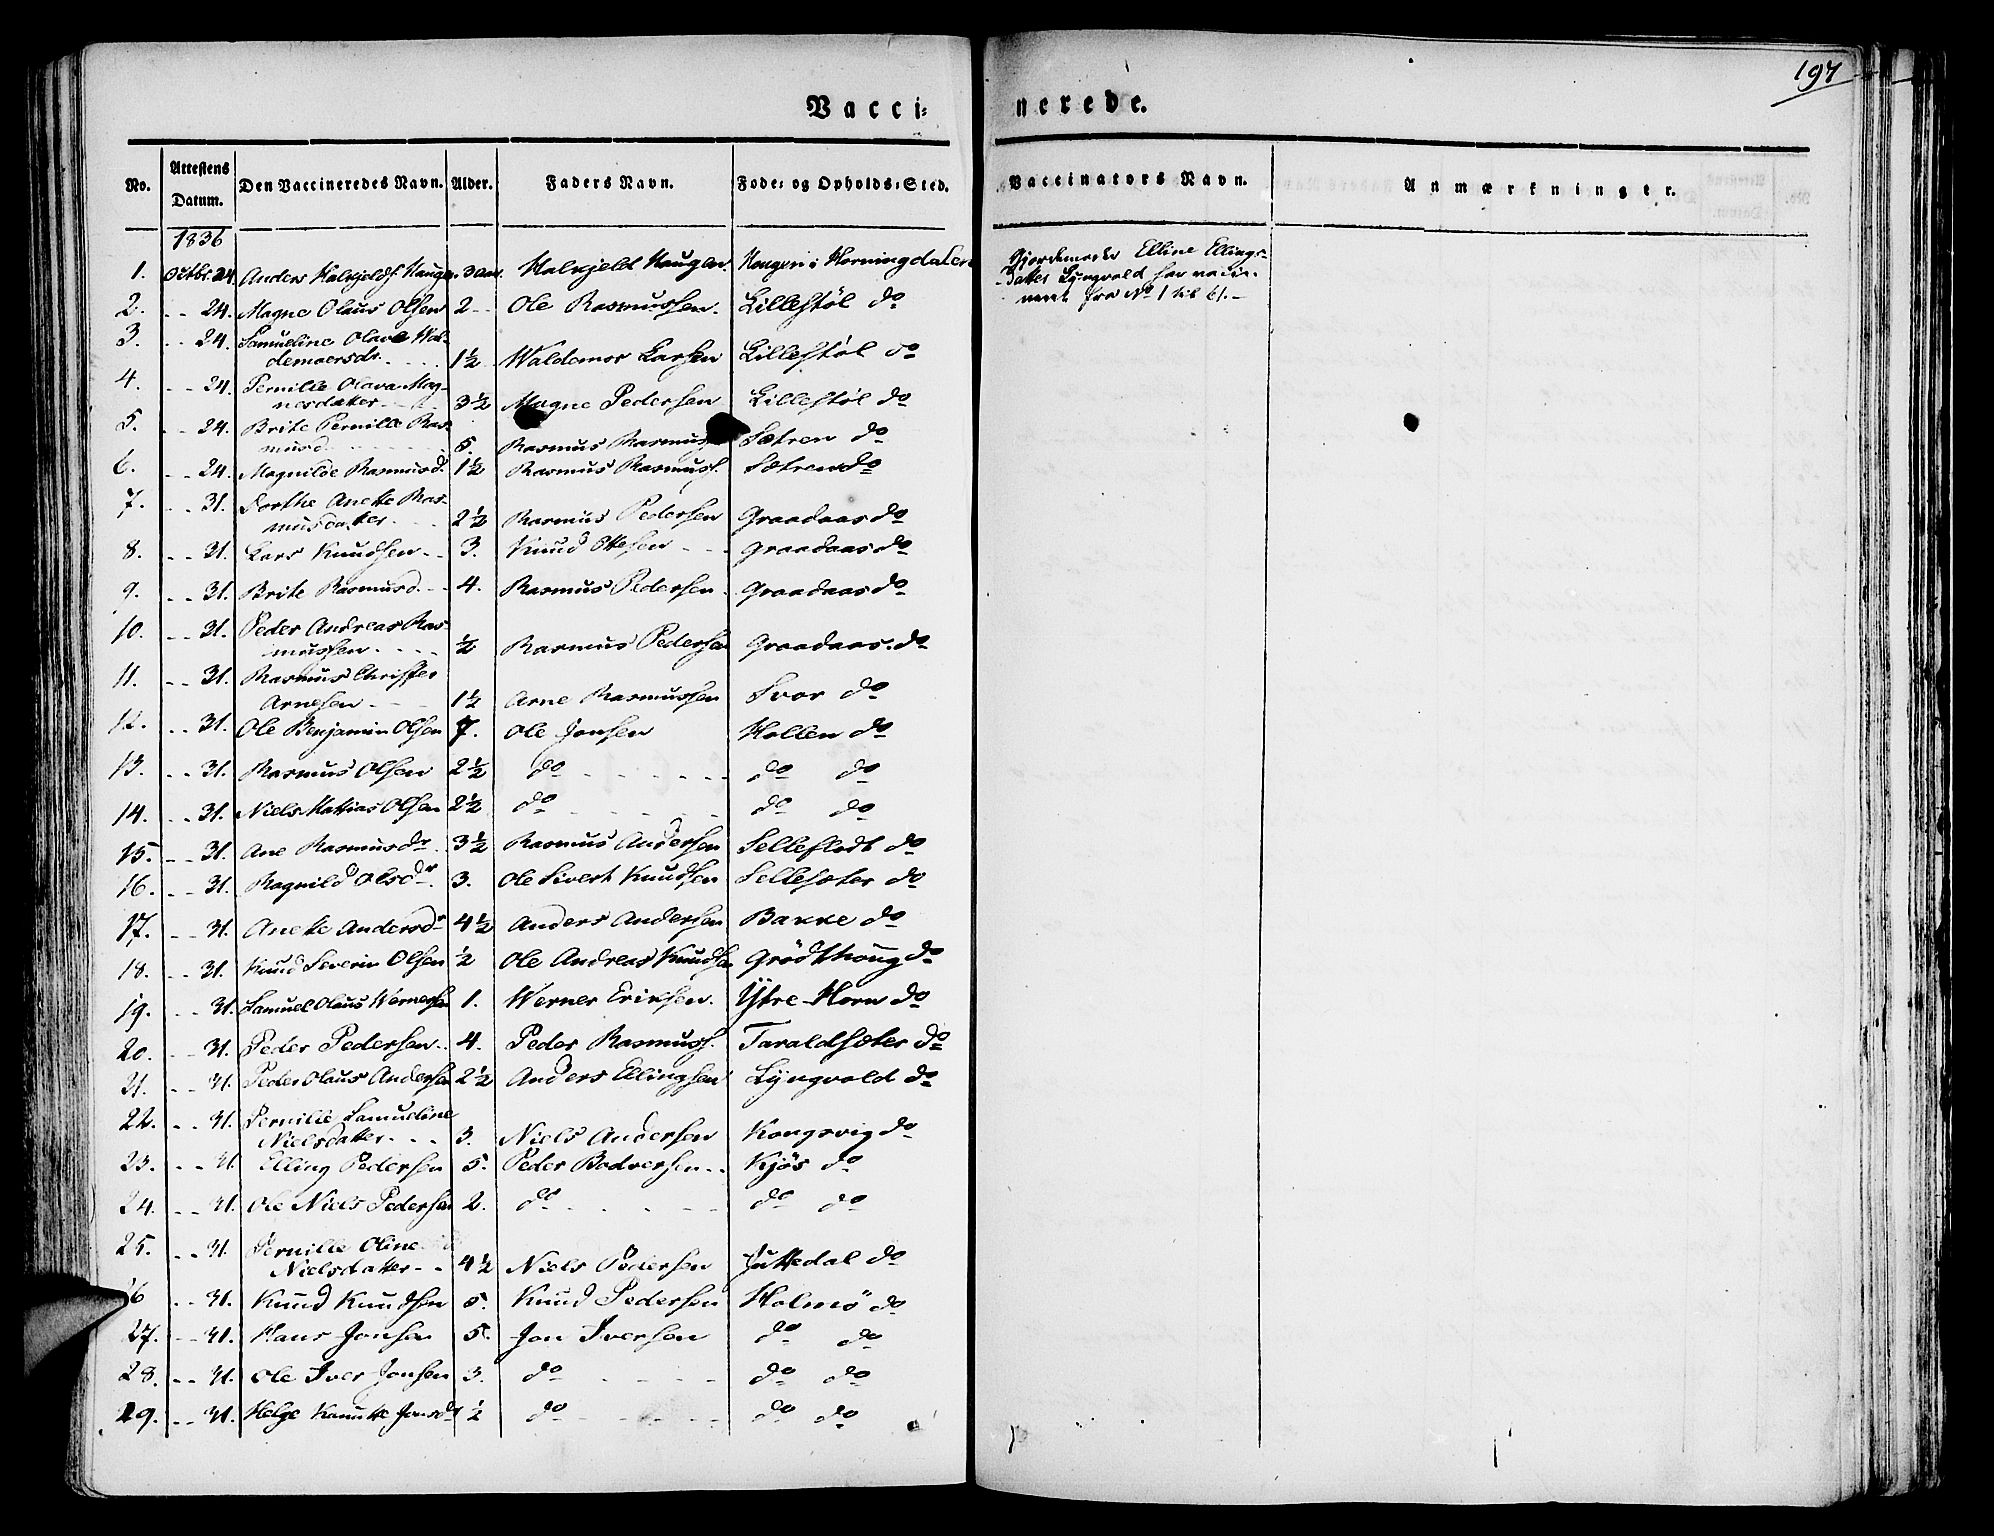 197
Vacci=
nerede.
No.
Attestens Datum.
Den Vaccineredes Navn.
Alder.
Faders Navn.
Føde= og Opholds=Sted.
Vaccinators Navn.
Anmærkninger.
1836
1. Octbr. 24. Anders Halkjelds. Haugen. 3 aar. Halkjeld Haugen. Haugen i Horningdalen
Gjordemoder Elline Ellings-
datter Lyngvold har vacci-
neret fra No 1 til 61.-
2. - - 24. Magne Olaus Olsen 2 - - Ole Rasmussen. Lillestøl do
3. - - 24. Samueline Olave Wal-
demarsdr. 1½ Waldemar Larsen Lillestøl do
4. - - 24. Pernille Olava Mag-
nesdatter 3½ Magne Pedersen Lillestøl do
5. - - 24. Brite Pernille Ras-
musd. 5. Rasmus Sætren do
6. - - 24. Magnilde Rasmusd. 1½ Rasmus Rasmuss. Sætren do
7. - - 31. Dorthe Anette Ras-
musdatter 2½ Rasmus Pedersen Graadaas do
8. - - 31. Lars Knudsen - - 3. Knud Ottesen - - - Graadaas do
9. - - 31. Brite Rasmusd. - - 4. Rasmus Pedersen. Graadaas do
10. - - 31. Peder Andreas Ras-
mussen ½ Rasmus Pedersen Graadaas. do
11. - - 31. Rasmus Christen
Arnesen 1½ Arne Rasmussen Svor do
12. - - 31. Ole Benjamin Olsen 7. Ole Jonsen Hollen do
13. - - 31. Rasmus Olsen 2½ do - - - - - do do
14. - - 31. Niels Mattias Olsen 2½ do - - - - - do do
15. - - 31. Ane Rasmusdr. 3½ Rasmus Andersen Selleflodt do
16. - - 31. Ragnild Olsdr. 3. Ole Sivert Knudsen Sellesæter do
17. - - 31. Anette Andersdr 4½ Anders Andersen Bakke do
18. - - 31. Knud Severin Olsen ½ Ole Andreas Knudsen Grødthoug do
19. - - 31. Samuel Olaus Wernersen 1. Werner Eriksen. Ytre-Horn do
20. - - 31. Peder Pedersen. 4. Peder Rasmuss. Taraldsæter do
21. - - 31. Peder Olaus Andersen 2½ Anders Ellingsen Lyngvold do
22. - - 31. Pernille Samueline
Nielsdatter - - - 3. Niels Andersen Kongsvig do
23. - - 31. Elling Pedersen 5. Peder Bodversen - - Kjøs do
24. - - 31. Ole Niels Pedersen 2. do - - - - - do do
25. - - 31. Pernille Oline
Nielsdatter - - 4½ Niels Pedersen Juttedal do
26 - - 31. Knud Knudsen 5. Knud Pedersen Holmø do
27. - - 31. Hans Jonsen 5. Jon Iversen do do
28. - - 31. Ole Iver Jonsen 3. do - - - - - do do
29. - - 31. Helge Knutte Jonsdr ½ do - - - - - do do